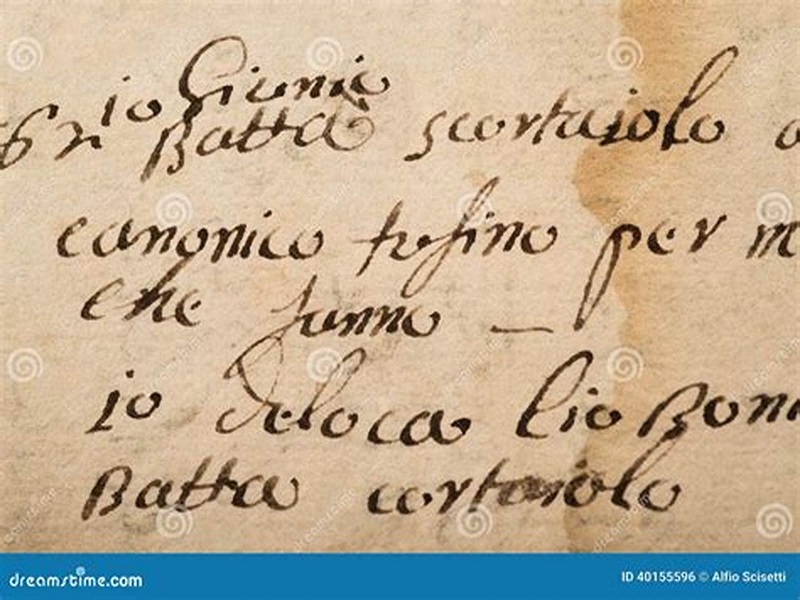 io Giunio
Batta scortaiolo
canonico per
che fanno —
io deloca lio
Batta cortaiolo
dreamstime.com
ID 40155596 © Alfio Scisetti